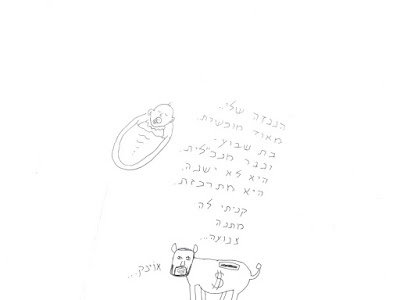 הנגזה שלי..
מאוד מוכשרת.
בת שבוע -
וכבר מנכ"לית.
היא לא ישנה,
היא מתרכזת.
קניתי לה
מתנה
צנועה...
אוינק...
$